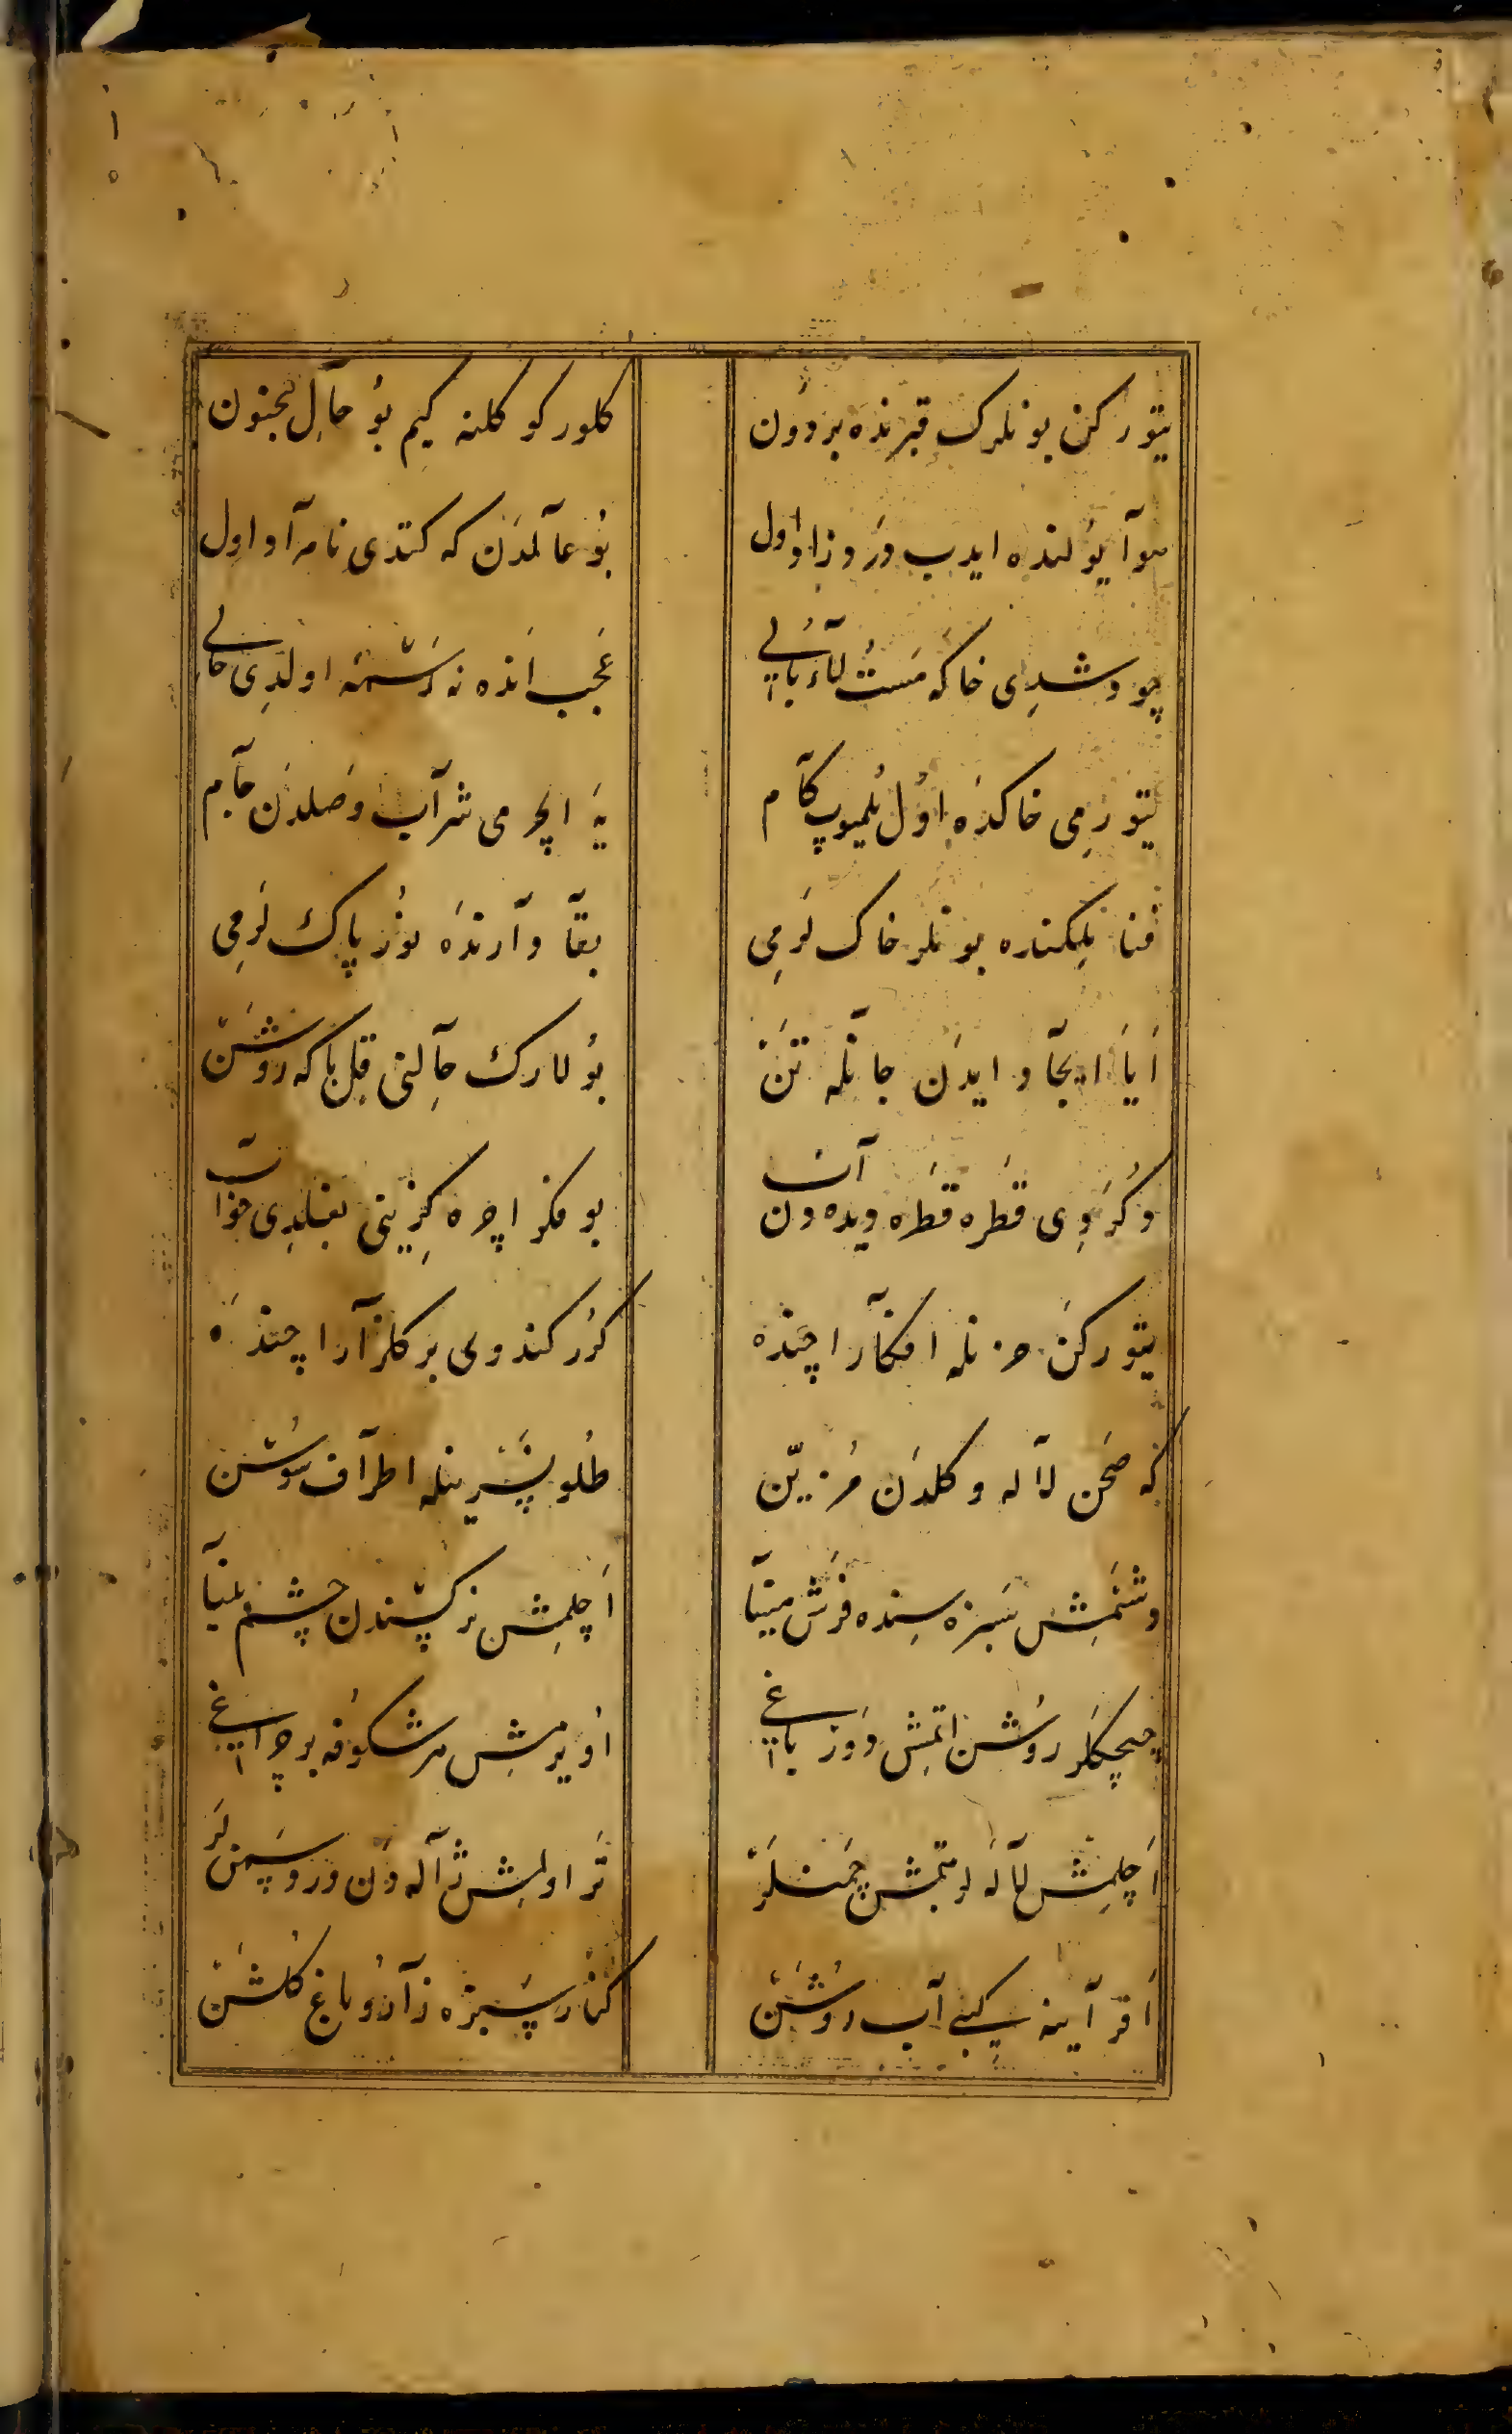 يتوركن بونلرك قبرنده بر دون
كلور كوكلنه كيم بو حال مجنون
هوآ يولنده ايدب درد زاد اول
بو عالمدن كه كتدى نامراد اول
چو دشدى خاكه مست لاابالى
عجب انده نه رسمه اولدى حالى
يتورمى خاكده اول بلميوب كام
يه ايچرمى شراب وصلدن جام
فنا بلكنده بونلر خاك لرمى
بقا وآرنده نور پاك لرمى
ايا ايجاد ايدن جانله تن
بولارك حالنى قل باكه روشن
دكردى قطره قطره ديده دن آب
بو فكر ايچره كوزينى بغلدى خواب
يتوركن حزنله افكار ايچنده
كرر كندوى بر كلزار ايچنده
كه صحن لاله و كلدن مزين
طلو نسرينله اطراف سوسن
دشنمش سبزه سنده فرش مينا
اچلمش نركسندن چشم بينا
چيچكلر روشن اتمش دور باغ
اويرمش هر شكوفه بر چراغ
اچلمش لاله لر بتمش چمنلر
تر اولمش ژاله دن ورد و سمنلر
اقر آيينه كبى آب روشن
كنار سبزه زار و باغ كلشن